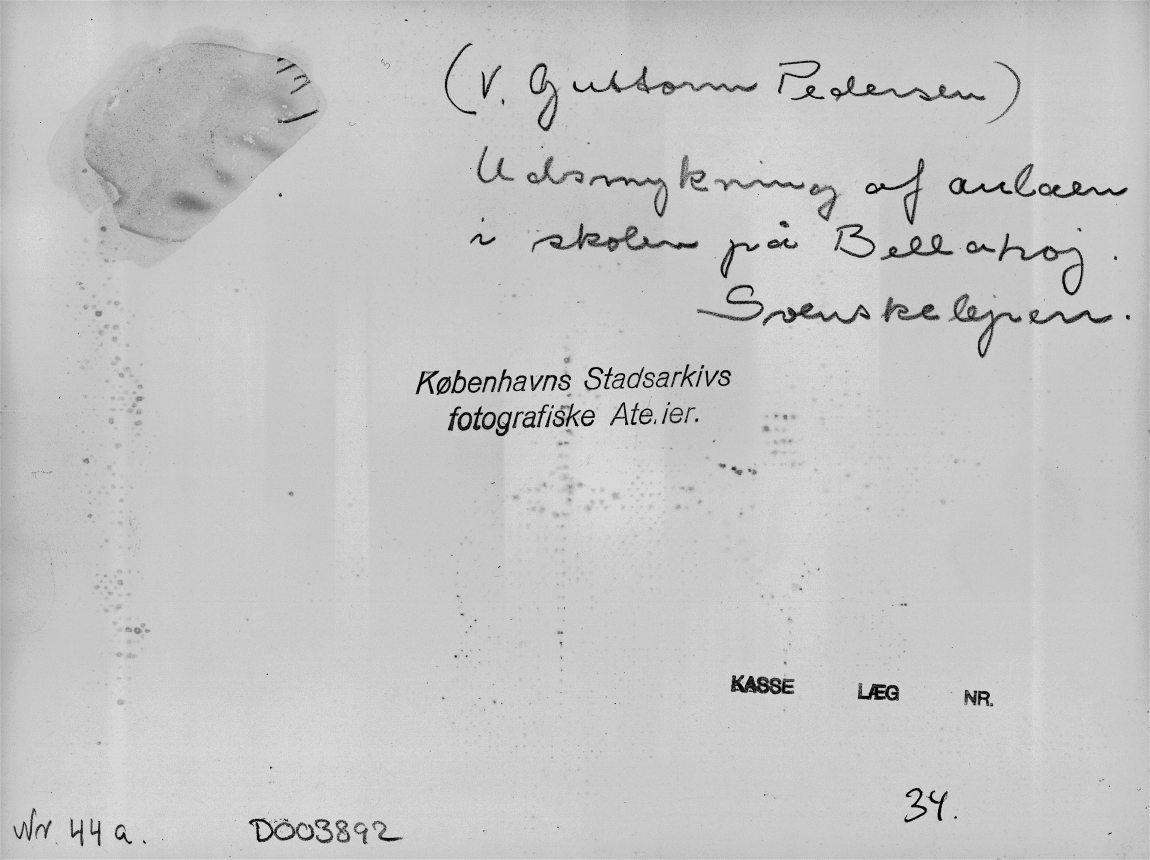 (V. Guttorm Pedersen)
Udsmykning af aulaen
i skolen på Bellahøj.
Svenskelejren.
Københavns Stadsarkivs
fotografiske Ate.ier.
KASSE LÆG NR.
34.
Nr. 44a. D003892